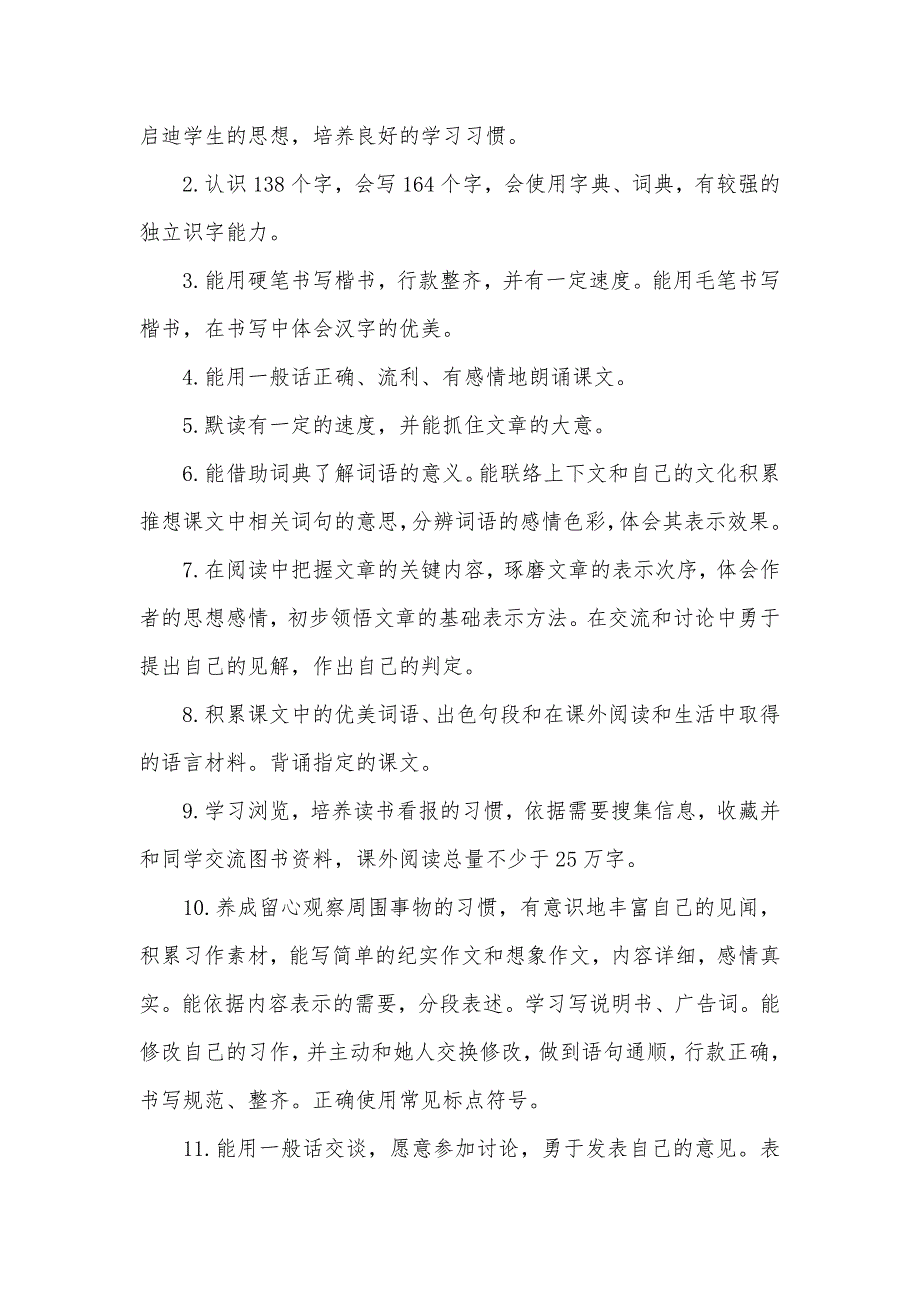 启迪学生的思想，培养良好的学习习惯。
2.认识 138 个字，会写 164 个字，会使用字典、词典，有较强的
独立识字能力。
3.能用硬笔书写楷书，行款整齐，并有一定速度。能用毛笔书写
楷书，在书写中体会汉字的优美。
4.能用一般话正确、流利、有感情地朗诵课文。
5.默读有一定的速度，并能抓住文章的大意。
6.能借助词典了解词语的意义。能联络上下文和自己的文化积累
推想课文中相关词句的意思，分辨词语的感情色彩，体会其表示效果。
7.在阅读中把握文章的关键内容，琢磨文章的表示次序，体会作
者的思想感情，初步领悟文章的基础表示方法。在交流和讨论中勇于
提出自己的见解，作出自己的判定。
8.积累课文中的优美词语、出色句段和在课外阅读和生活中取得
的语言材料。背诵指定的课文。
9.学习浏览，培养读书看报的习惯，依据需要搜集信息，收藏并
和同学交流图书资料，课外阅读总量不少于 25 万字。
10.养成留心观察周围事物的习惯，有意识地丰富自己的见闻，
积累习作素材，能写简单的纪实作文和想象作文，内容详细，感情真
实。能依据内容表示的需要，分段表述。学习写说明书、广告词。能
修改自己的习作，并主动和她人交换修改，做到语句通顺，行款正确，
书写规范、整齐。正确使用常见标点符号。
11.能用一般话交谈，愿意参加讨论，勇于发表自己的意见。表